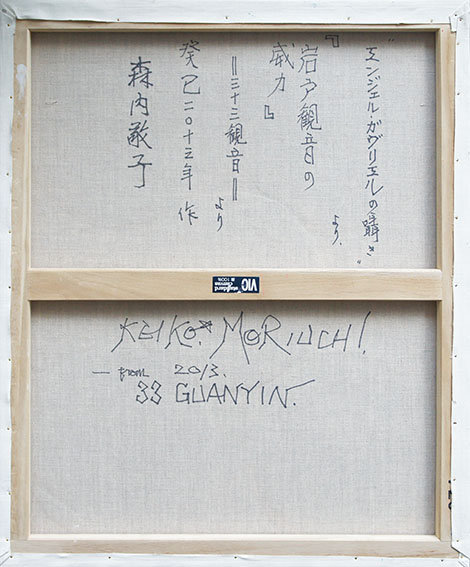 “エンジェル・ガヴリエルの囁き”
より、
『岩戸観音の
威力』
＝三十三観音＝
より
癸巳二〇十三年 作
森内敬子
VIC
standard
canvas
麻100%
KEIKO. MORIUCHI!
— from 2013.
33 GUANYIN.